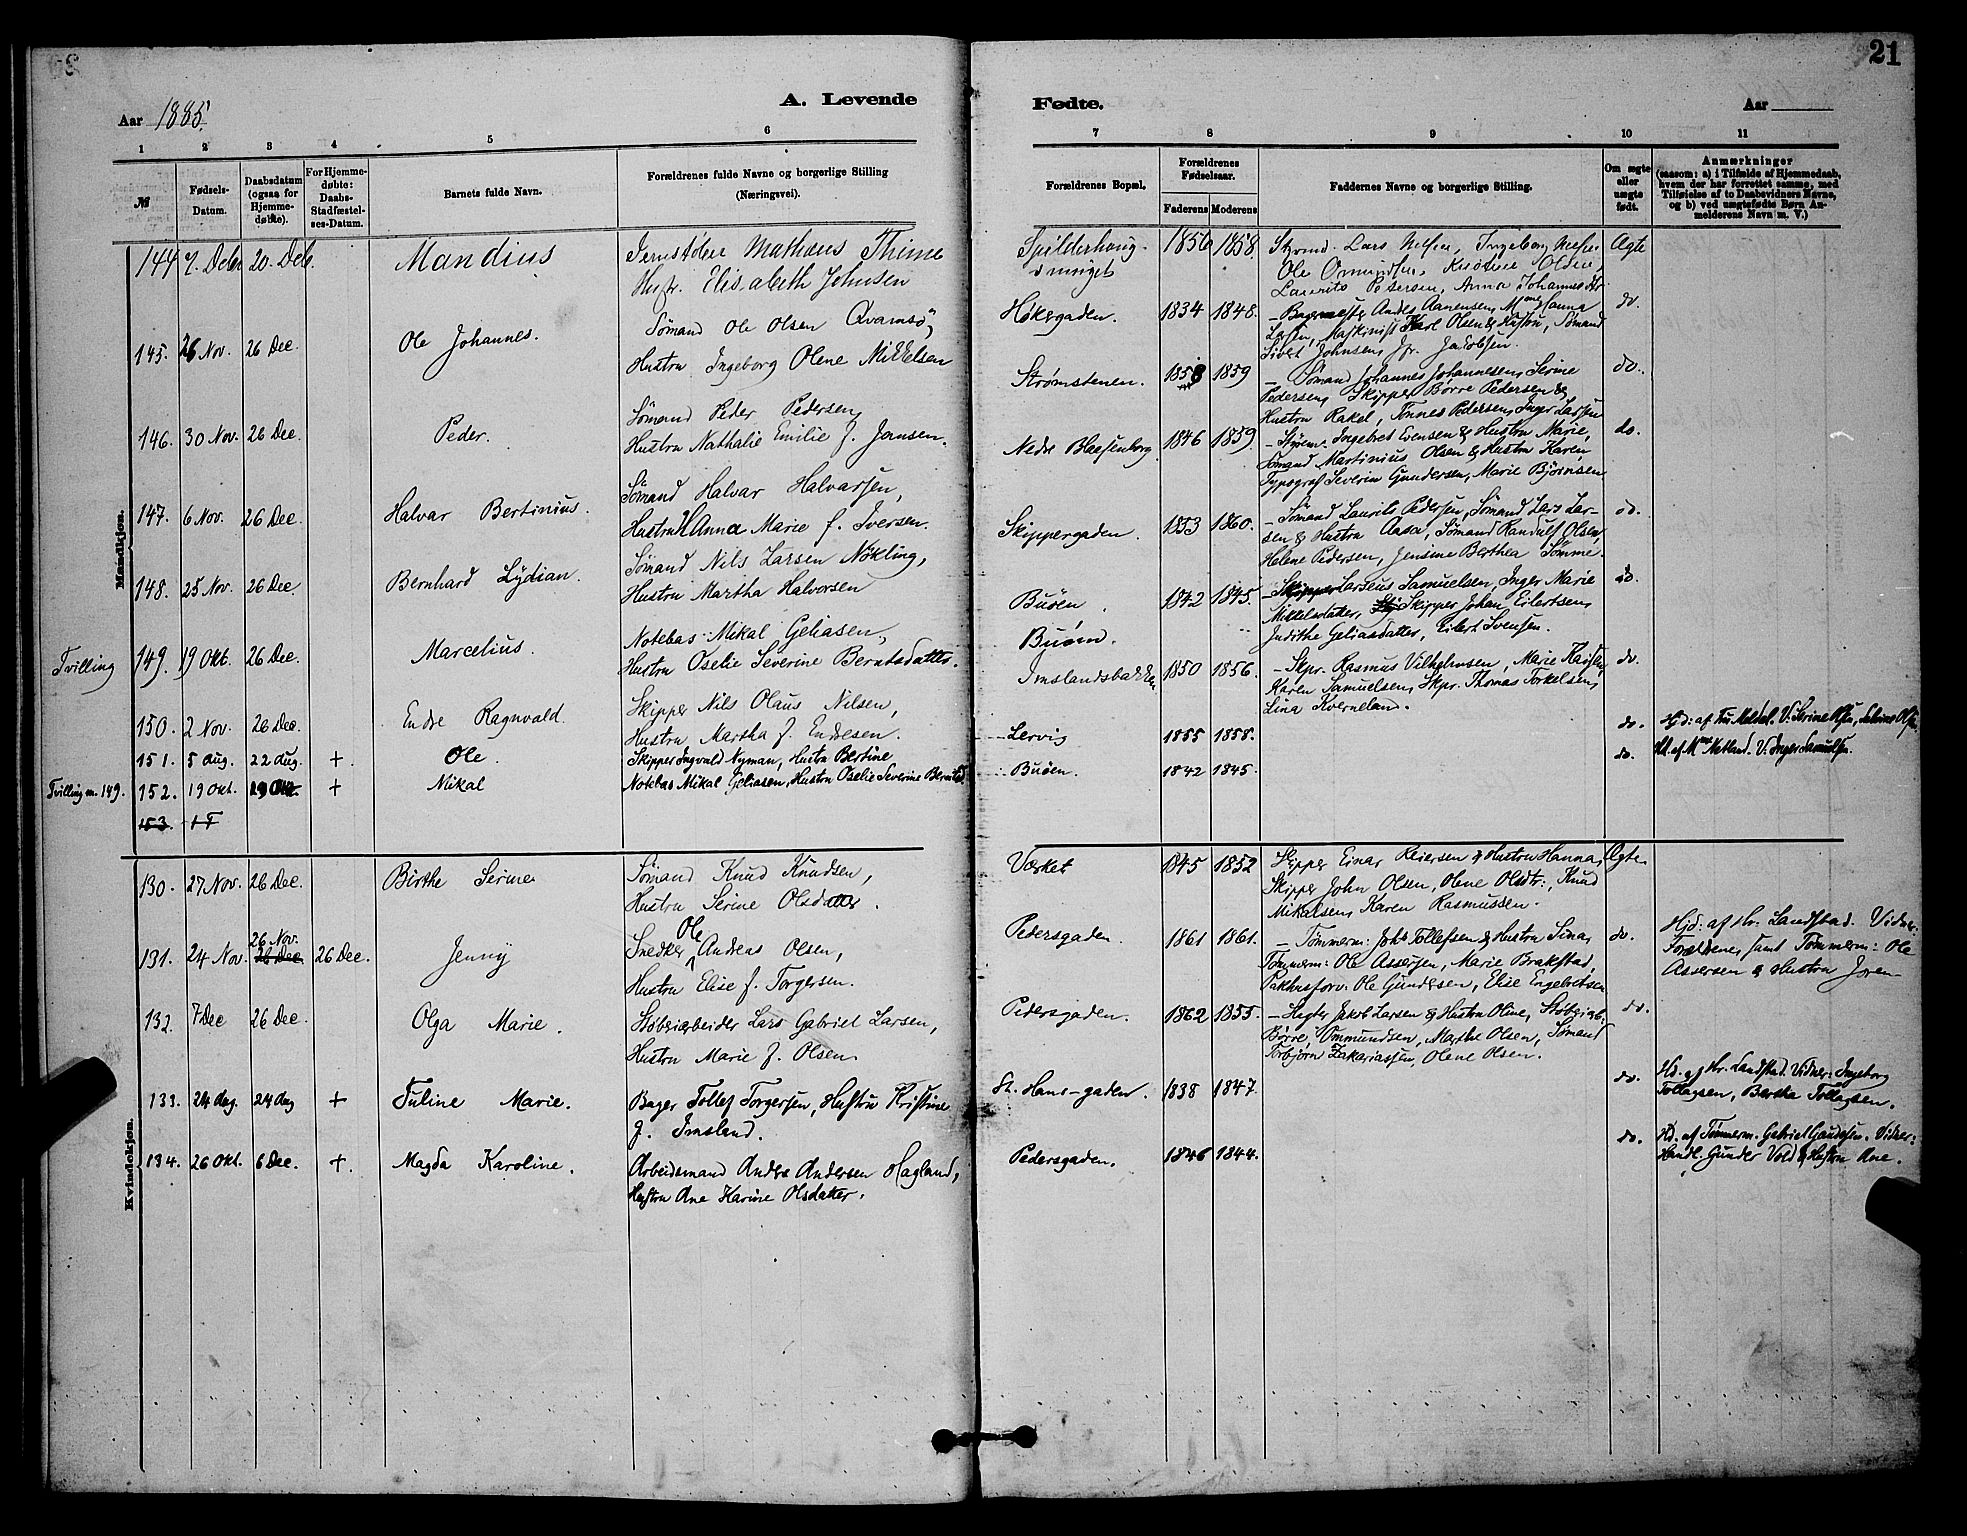 21
Aar 1885.
A. Levende
Fødte.
Aar
1 2 3 4 5 6 7 8 9 10 11
№
Fødsels-Datum.
Daabsdatum (ogsaa for Hjemme-døbte).
For Hjemme-døbte: Daabs-Stadfæstel-ses-Datum.
Barnets fulde Navn.
Forældrenes fulde Navne og borgerlige Stilling (Næringsvei).
Forældrenes Bopæl.
Forældrenes Fødselsaar.
Faderens Moderens
Faddernes Navne og borgerlige Stilling.
Om ægte eller uægte født.
Anmærkninger (saasom: a) i Tilfælde af Hjemmedaab, hvem der har forrettet samme, med Tilføielse af to Daabsvidners Navne, og b) ved uægtefødte Børn Anmelderens Navn m. V.)
Mandkjøn.
144 7. Debr 20. Deb. Mandius
Jernstøber Mathæus Thime
Hustr. Elisabeth Johnsen
1856 1858. Lars Nelsen, Ingeborg Nelsen
Ole Omundsen, Kristine Olsen,
Laurits Petersen, Anna Johannesdtr
Ægte
145. 26 Nov. 26 Dec. Ole Johannes.
Sømand Ole Olsen Qvamsø,
Hustru Ingeborg Olene Mikkelsen
Høkergaden. 1834 1848.
Larsen, Maskinist Karl Olsen & Hustru, Sømand
Sivert Johnsen, Jfr. Jakobsen.
do.
146. 30 Nov. 26 Dec. Peder.
Sømand Peder Pedersen,
Hustru Nathalie Emilie f. Jansen.
Strømstenen. 1858 1859 – Sømand Johannes Johannesen, Serine
Pedersen, Skipper Børre Pedersen &
Hustru Rakel, Tønnes Pedersen, Inger Larsen
do.
147. 6 Nov. 26 Dec. Halvar Bertinius.
Sømand Halvar Halvarsen,
Hustru Hanna Marie f. Iversen.
Nedre Blaasenborg. 1846 1859 – Ingebret Evensen & Hustru Marie,
Sømand Martinius Olsen & Hustru Karen
Typograf Severin Gundersen, Marie Bjørnsen
do.
148. 25 Nov. 26 Dec. Bernhard Lydian.
Sømand Nils Larsen Nökling,
Hustru Martha Halvorsen
Skippergaden. 1853 1860. – Sømand Laurits Pedersen, Sømand Lars Lar-
sen & Hustru Aasa, Sømand Randulf Olsen,
Helene Pedersen, Jensine Berthea Tømme.
do.
Tvilling 149. 19 Okt. 26 Dec. Marcelius.
Notebas Mikal Geliasen,
Hustru Oselie Severine Berntsdatter.
Buøen. 1842 1845. – Skipper Larseus Samuelsen, Inger Marie
Mikkelsdatter, Skipper Johan Eilertsen,
Buøen. Judithe Geliasdatter, Eilert Svensen.
do.
150. 2 Nov. 26 Dec. Endre Ragnvald.
Skipper Nils Olaus Nilsen,
Hustru Martha f. Endresen.
Imslandsbakken 1850 1856. – Skpr. Rasmus Vilhelmsen, Marie
Karen Samuelsen, Skpr. Thomas Torkelsen,
Lina Kverneland.
do.
151. 5 Aug. 22 Aug. + Ole.
Skipper Ingvald Nyman, Hustru Bertine
Lervig 1855 1858. do.
Hjd: af Fru Meldal. V: Serine Olsen,
Tvilling m. 149. 152. 19 Okt. 19 Okt. + Mikal
Notebas Mikal Geliasen, Hustru Oselie Severine Berntsd.
Buøen. 1842 1845. do.
Hd. af Netland. V: Inger Samuelsen.
153.
Kvindekjøn.
130. 27 Nov. 26 Dec. Birthe Serine
Sømand Knud Knudsen,
Hustru Serine Olsdatter.
Værket 1845 1852 Skipper Einar Reiersen & Hustru Hanna,
Skipper John Olsen, Olene Olsdtr:, Knud
Mikalsen, Karen Rasmussen.
Ægte
131. 24 Nov. 26 Nov. 26 Dec. 26 Dec. Jenny
Snedker Ole Andreas Olsen,
Hustru Elise f. Torgersen.
Pedersgaden. 1861 1861. – Tømmerm: Johs Tollefsen & Hustru Sina,
Tømmerm: Ole Assersen, Marie Brakstad,
Pakhusforv: Ole Gundersen, Elise Engebretsen
do.
Hjd: af Hr. Landstad. Vidner:
Forældrene, samt Tømmerm: Ole
Assersen & Hustru Joren
132. 7 Dec 26 Dec. Olga Marie.
Støberiarbeider Lars Gabriel Larsen,
Hustru Marie f. Olsen
Pedersgaden. 1862 1855. – Jakob Larsen & Hustru Oline, Støberiarb.
Børre Ommundsen, Marthe Olsen, Sømand
Torbjørn Zakariassen, Olene Olsen.
do.
133. 24 Aug. 24 Aug + Tuline Marie.
Bager Tollef Torgersen, Hustru Kristine
f. Imsland.
St. Hans-gaden. 1838 1847. do.
Hd. af Hr. Landstad. Vidner: Ingeborg
Tollagsen, Bertha Tollagsen.
134. 26 Okt. 6 Dec. + Magda Karoline.
Arbeidsmand Anders Andersen Hagland,
Hustru Ane Karine Olsdatter.
Pedersgaden. 1846 1844. do.
Hd. af Tømmerm. Gabriel Vidner:
Handl. Gunder Vold & Hustru Ane.